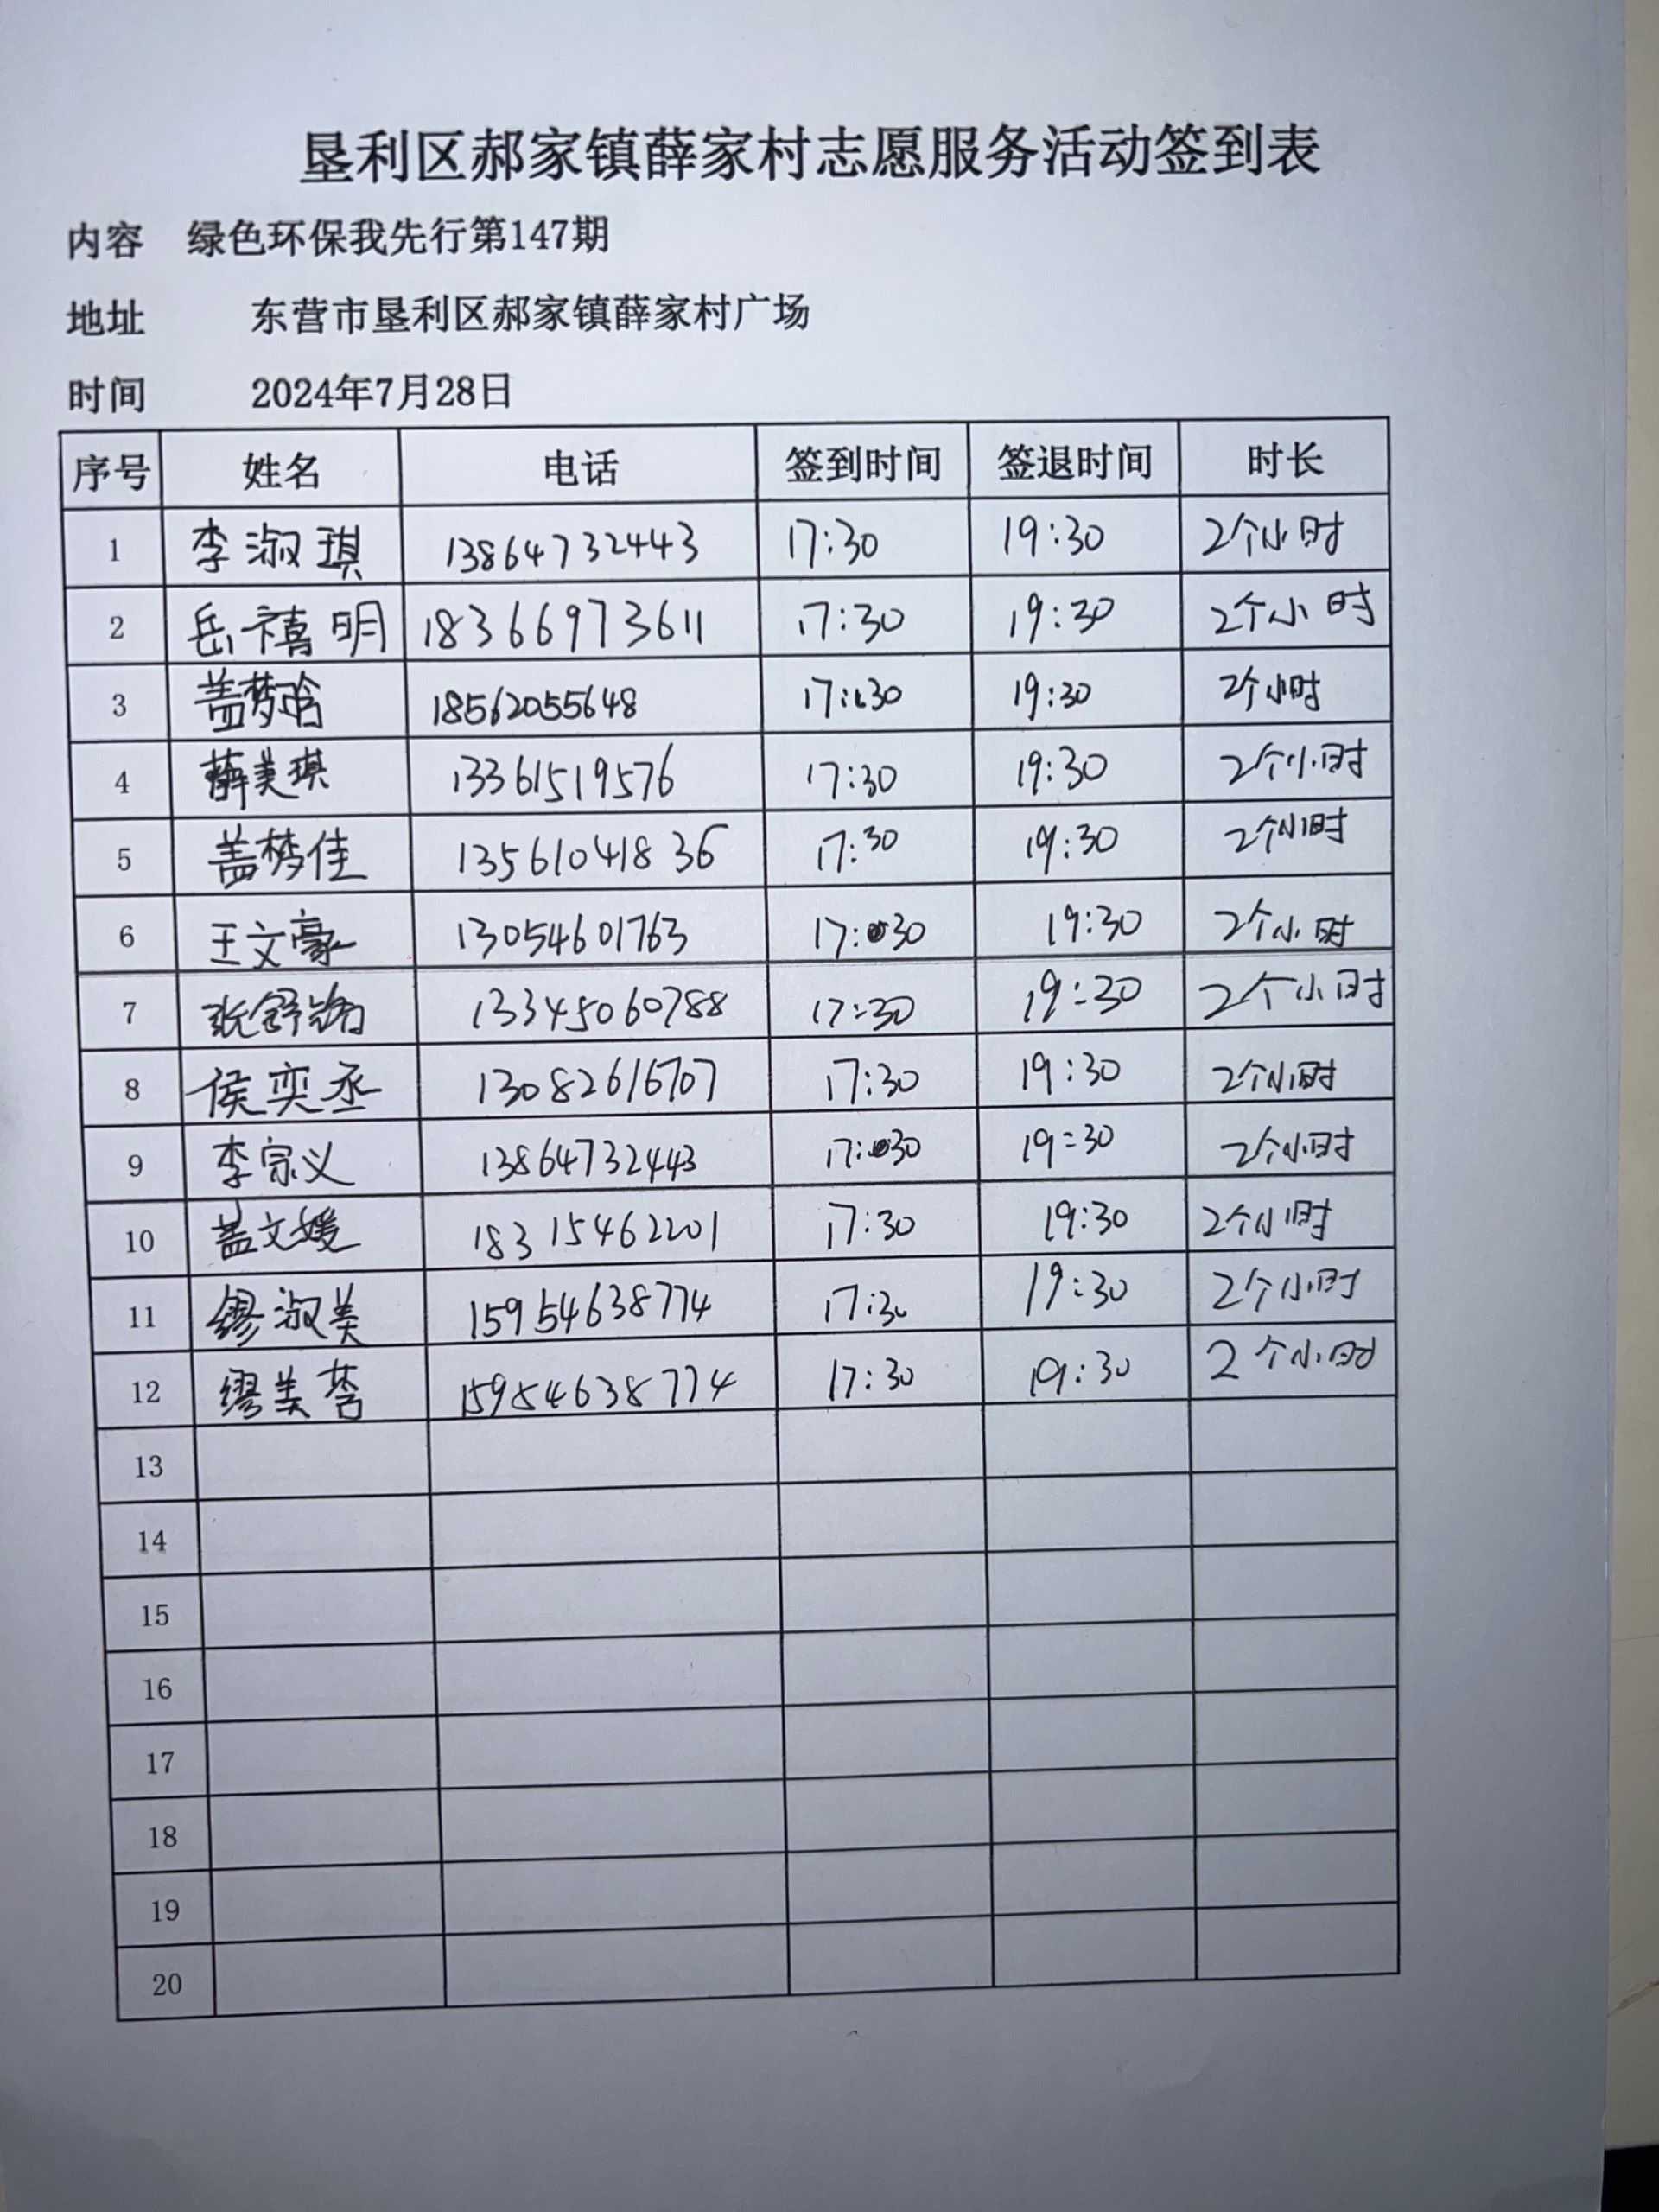 垦利区郝家镇薛家村志愿服务活动签到表
内容 绿色环保我先行第147期
地址 东营市垦利区郝家镇薛家村广场
时间 2024年7月28日
序号 姓名 电话 签到时间 签退时间 时长
1 李淑琪 13864732443 17:30 19:30 2个小时
2 岳禧明 18366973611 17:30 19:30 2个小时
3 盖梦晗 18562055648 17:30 19:30 2个小时
4 薛美琪 13361519576 17:30 19:30 2个小时
5 盖梦佳 13561041836 17:30 19:30 2个小时
6 王文豪 13054601763 17:30 19:30 2个小时
7 张舒 13345060788 17:30 19:30 2个小时
8 侯奕丞 13082616707 17:30 19:30 2个小时
9 李宗义 13864732443 17:30 19:30 2个小时
10 盖文媛 18315462201 17:30 19:30 2个小时
11 缪淑美 15954638774 17:30 19:30 2个小时
12 缪美 15954638774 17:30 19:30 2个小时
13
14
15
16
17
18
19
20